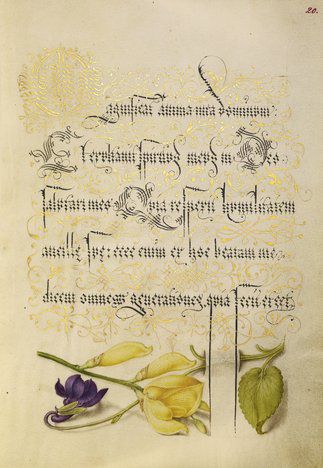 20.
Magnificat anima mea dominum:
Et exultavit spiritus meus in Deo:
salutari meo: Quia respexit humilitatem
ancillę suę: ecce enim ex hoc beatam me:
dicent omnes generationes, quia fecit